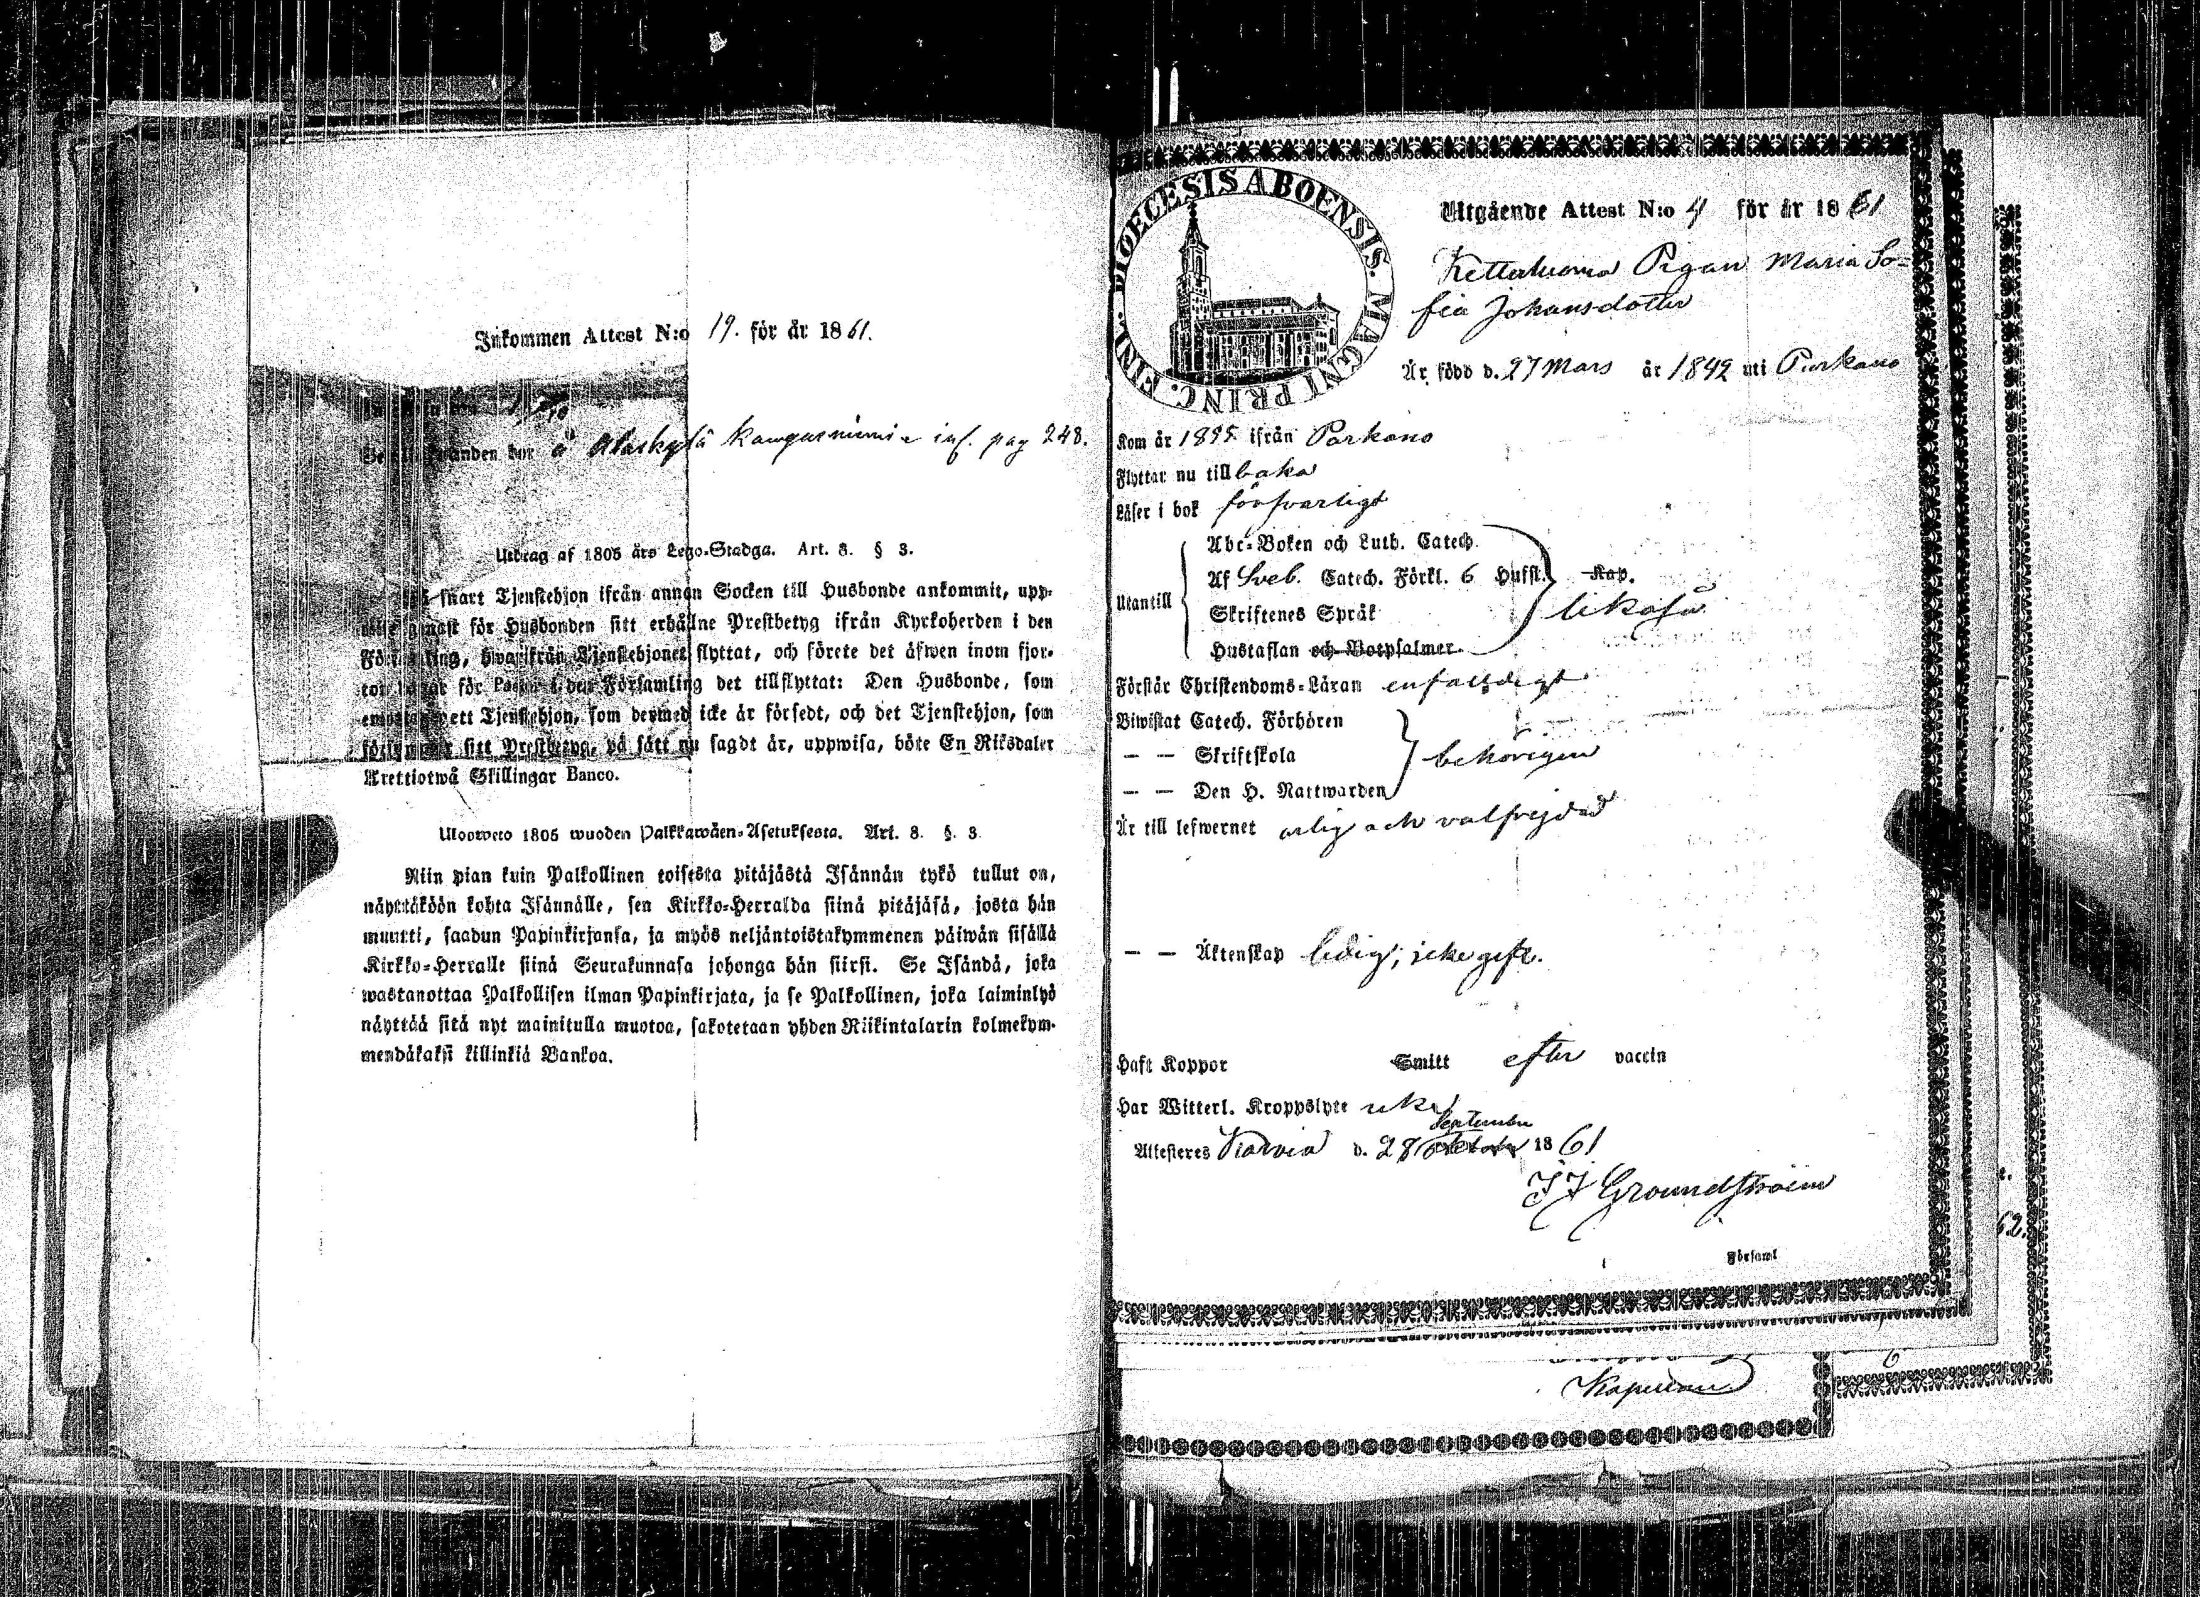 Inkommen Attest N:o 19. för år 1861.
å Alaskylä Kangasniemi inf. pag 248.
Utdrag af 1805 års Lego-Stadga. Art. 8. § 3.
snart Tjenstehjon ifrån annan Socken till Husbonde ankommit, upp-
för Husbonden sitt erhållne Prestbetyg ifrån Kyrkoherden i den
Församling, hwarifrån Tjenstehjonet flyttat, och förete det äfwen inom fjor-
ton dagar för Pastor i den Församling det tillflyttat: Den Husbonde, som
emottager ett Tjenstehjon, som dermed icke är försedt, och det Tjenstehjon, som
försummar sitt Prestbetyg, på sätt nu sagdt är, uppwisa, böte En Riksdaler
Trettiotwå Skillingar Banco.
Ulosweto 1805 wuoden Palkkawäen-Asetuksesta. Art. 8. §. 3.
Niin pian kuin Palkollinen toisesta pitäjästä Isännän tykö tullut on,
näyttäköön kohta Isännälle, sen Kirkko-Herralda siinä pitäjäsä, josta hän
muutti, saadun Papinkirjansa, ja myös neljäntoistakymmenen päiwän sisällä
Kirkko-Herralle siinä Seurakunnasa johonga hän siirsi. Se Isändä, joka
wastanottaa Palkollisen ilman Papinkirjata, ja se Palkollinen, joka laiminlyö
näyttää sitä nyt mainitulla muotoa, sakotetaan yhden Riikintalarin kolmekym-
mendäkaksi killinkiä Bankoa.
DIOECESIS ABOENSIS. MAGNI PRINC. FINL.
Utgående Attest N:o 4 för år 1861
Pigan Maria So-
fia Johansdotter
Är född d. 27 Mars år 1842 uti Parkano
Kom år 1855 ifrån Parkano
Flyttar nu till baka
Läser i bok försvarligt
Abc-Boken och Luth. Catech.
Af Sveb. Catech. Förkl. 6 Hufst. Kap.
Utantill likaså
Skriftenes Språk
Hustaflan och Botpsalmer
Förstår Christendoms-Läran enfaldigt
Biwistat Catech. Förhören
— — Skriftskola behörigen
— — Den H. Nattwarden
Är till lefwernet ärlig och välfrejdad
— — Äktenskap ledig; icke gift.
Haft Koppor Smitt efter vaccin
Har Witterl. Kroppslyte icke
September
Attesteres Karvia d. 28 Oktober 1861
J J Groundstroëm
Församl
62.
Kapellan